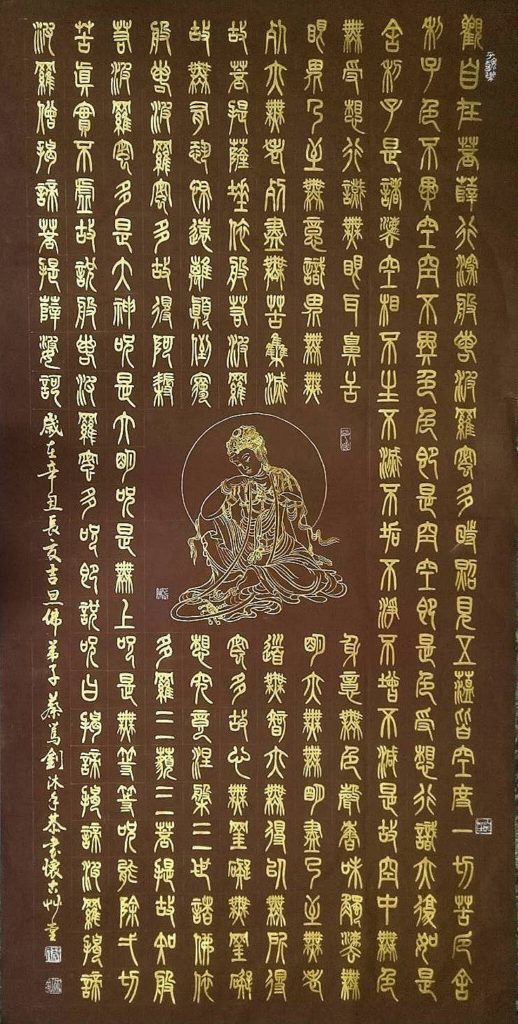 觀自在菩薩行深般若波羅蜜多時照見五蘊皆空度一切苦厄舍
利子色不異空空不異色色即是空空即是色受想行識亦復如是
舍利子是諸法空相不生不滅不垢不淨不增不減是故空中無色
無受想行識無眼耳鼻舌身意無色聲香味觸法無
眼界乃至無意識界無無明亦無無明盡乃至無老
死亦無老死盡無苦集滅道無智亦無得以無所得
故菩提薩埵依般若波羅蜜多故心無罣礙無罣礙
故無有恐怖遠離顛倒夢想究竟涅槃三世諸佛依
般若波羅蜜多故得阿耨多羅三藐三菩提故知般
若波羅蜜多是大神呪是大明呪是無上呪是無等等呪能除弌切
苦真實不虛故說般若波羅蜜多呪即說呪曰揭諦揭諦波羅揭諦
波羅僧揭諦菩提薩婆訶
歲在辛丑長夏吉旦佛弟子蔡篤釗沐手恭書懷古艸堂